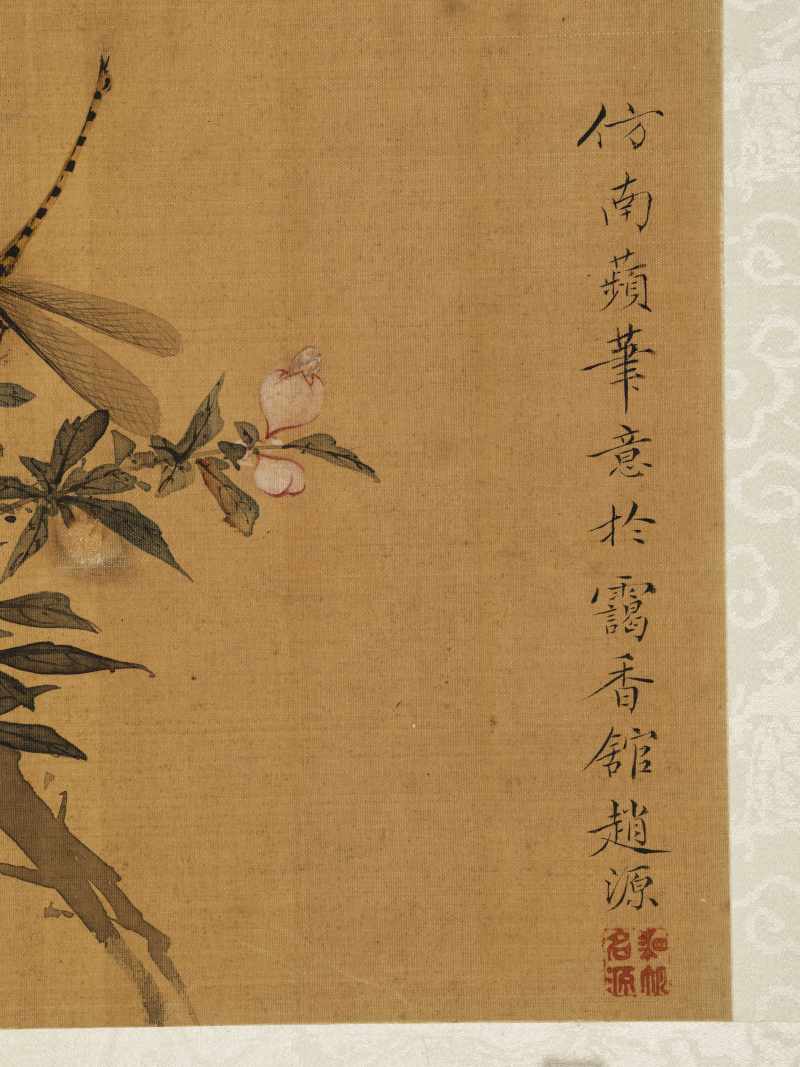 仿南蘋筆意於靄香舘趙源